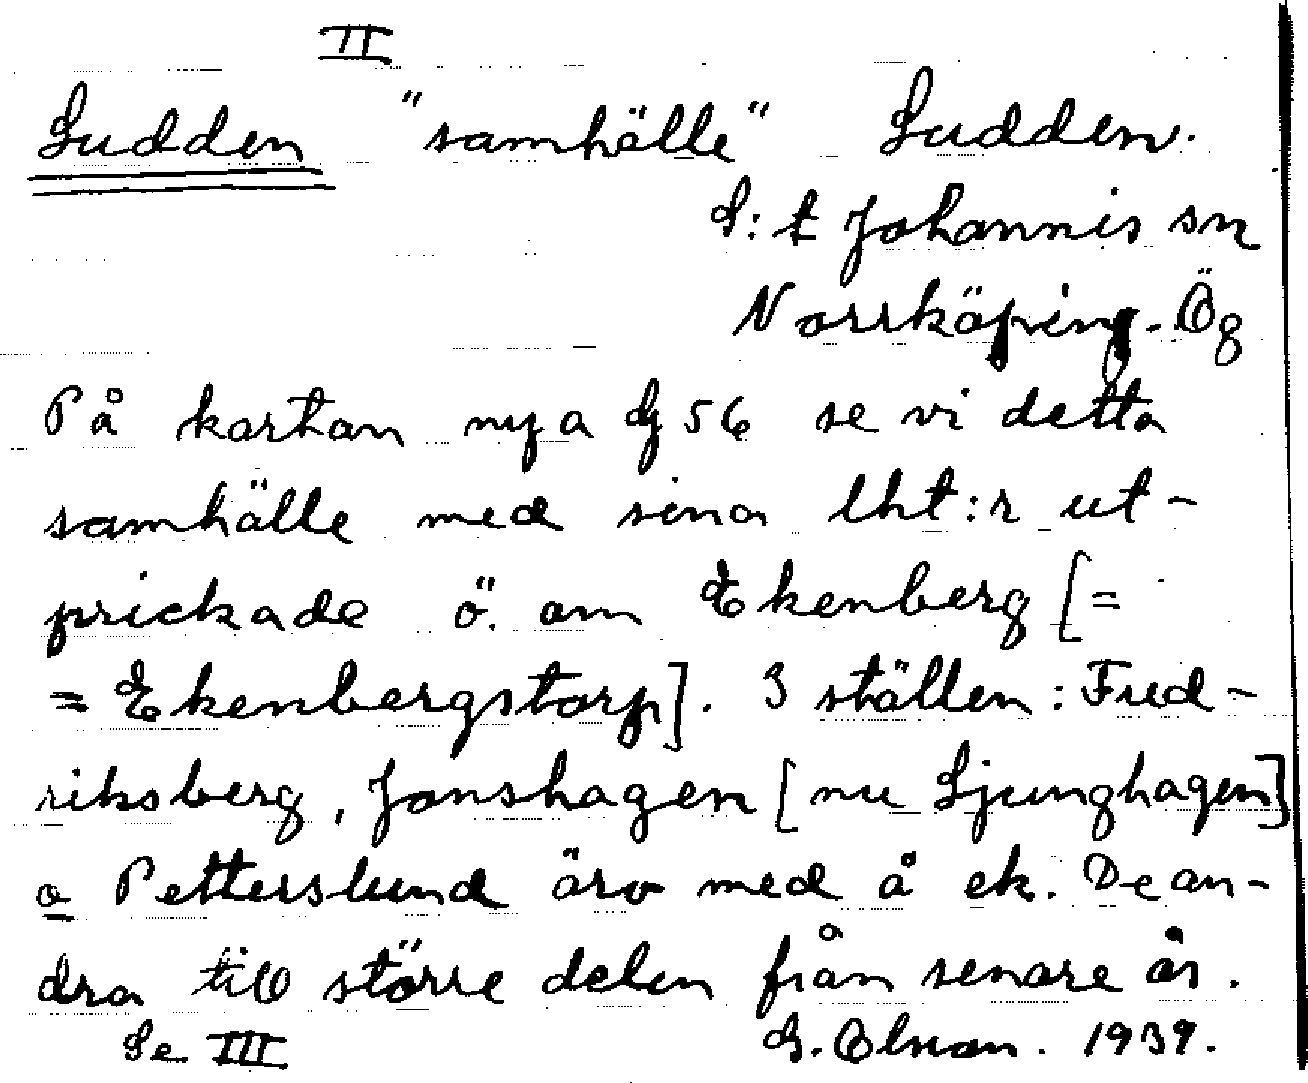 II
Sudden "samhälle" Sudden.
S:t Johannis sn
Norrköping. Ög
På kartan nya Gf 56 se vi detta
samhälle med sina lht:r ut-
prickade ö. om Ekenberg [=
= Ekenbergstorp]. 3 ställen: Fred-
riksberg, Jonshagen [nu Ljunghagen]
o Petterslund äro med å ek. De an-
dra till större delen från senare år.
Se III G. Olson. 1939.